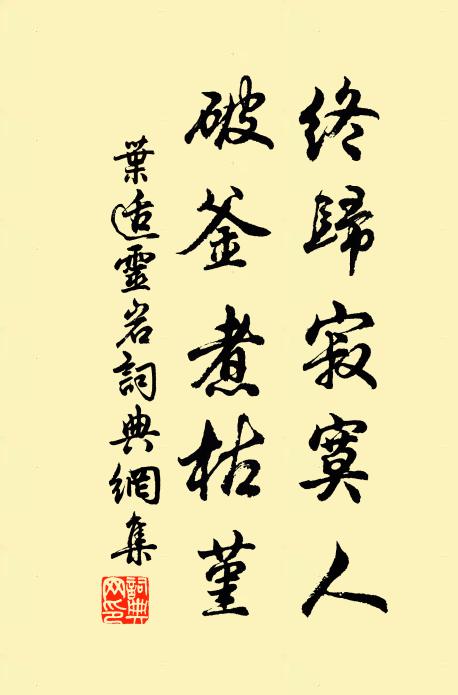 終歸寂寞人
破釜煮枯堇
葉适靈岩詞典網集
詞典網印